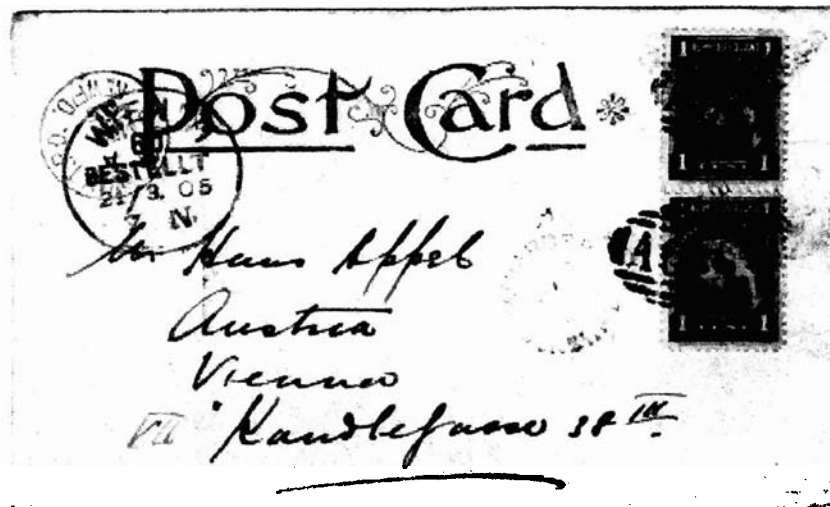 Post Card
WIEN
BESTELLT
21/3. 05
7. N.
1 1
1 CENT 1
1 1
1 CENT 1
A
Mr Hans Appel
Austria
Vienna
VII Kandlgasse 38 III